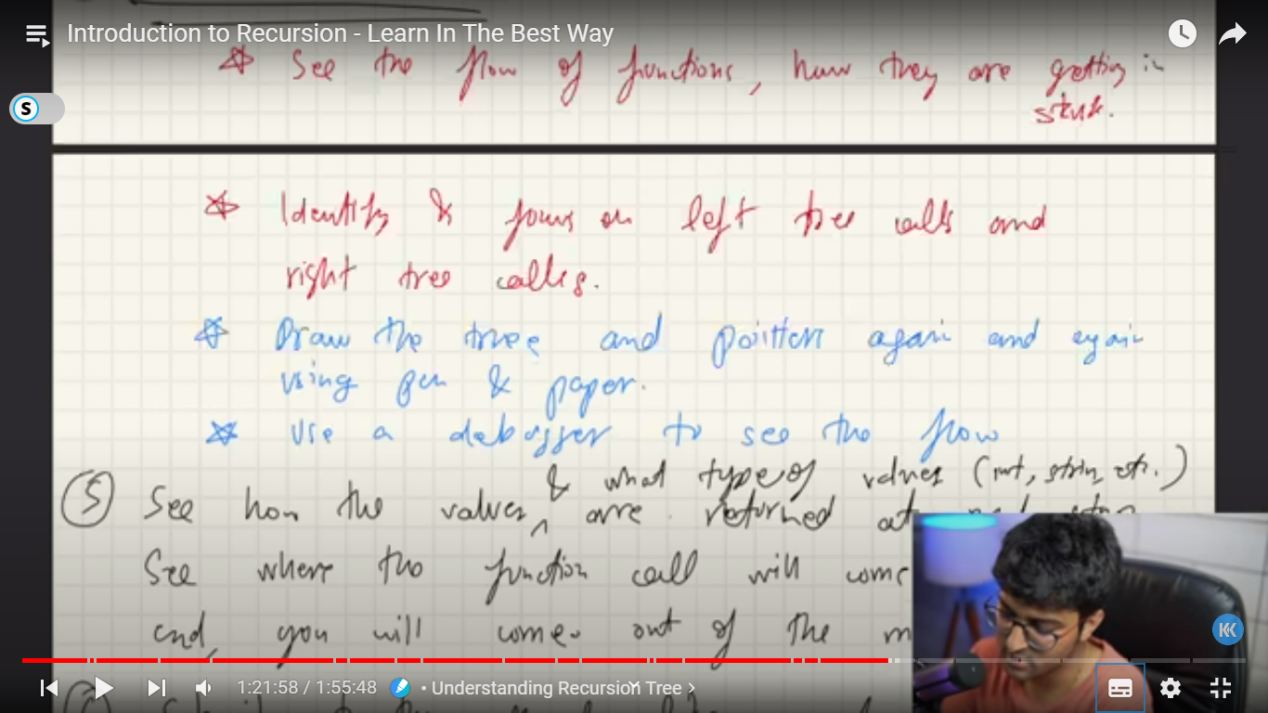 Introduction to Recursion - Learn In The Best Way
See the flow of functions, how they are getting in
stack.
S
Identify & focus on left tree calls and
right tree calls.
Draw the tree and pointers again and again
using pen & paper.
Use a debugger to see the flow
& what type of values (int, string, etc.)
5 See how the values are returned at
See where the function call will come
end, you will come out of the m
1:21:58 / 1:55:48 • Understanding Recursion Tree >